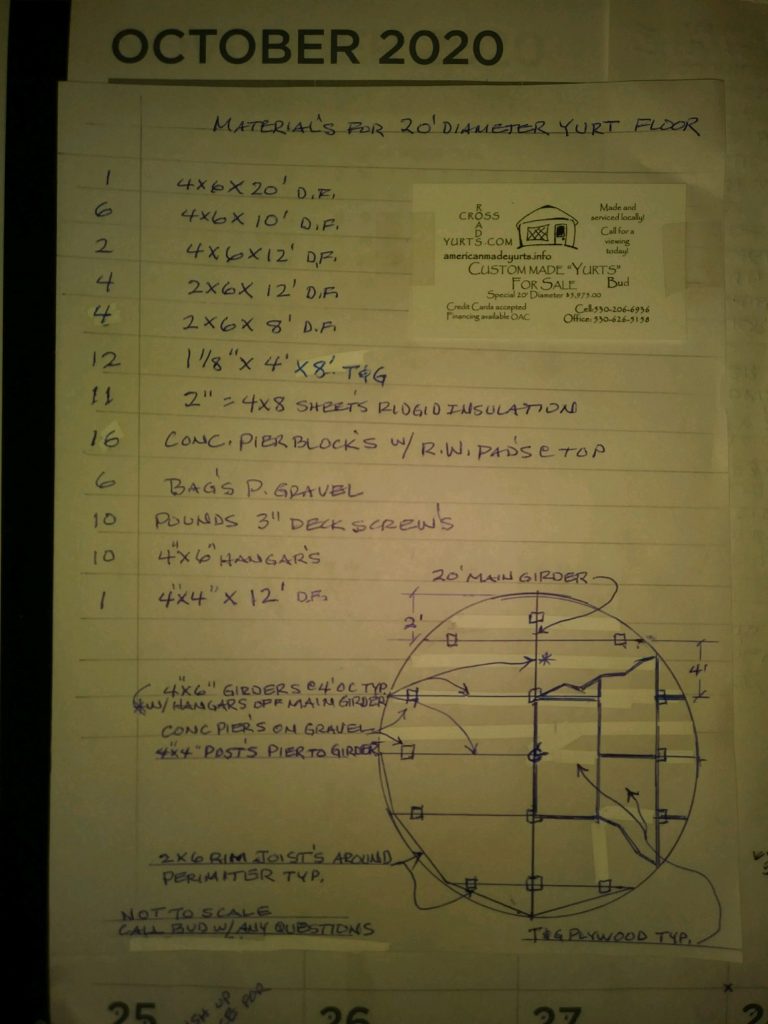 OCTOBER 2020
MATERIAL'S FOR 20' DIAMETER YURT FLOOR
1 4x6x20' D.F.
6 4x6x10' D.F.
2 4x6x12' D.F.
4 2x6x12' D.F.
4 2x6x8' D.F.
12 1 1/8" x 4' x8' T&G
11 2" = 4x8 SHEET'S RIDGID INSULATION
16 CONC. PIER BLOCK'S W/ R.W. PAD'S @ TOP
6 BAG'S P. GRAVEL
10 POUNDS 3" DECK SCREW'S
10 4"x6" HANGAR'S
1 4"x4" x 12' D.F.
CROSS ROADS
YURTS.COM
americanmadeyurts.info
Made and
serviced locally!
Call for a
viewing
today!
CUSTOM MADE "YURTS"
FOR SALE Bud
Special 20' Diameter $5,975.00
Credit Cards accepted
Financing available OAC
Cell:530-206-6936
Office: 530-626-5158
20' MAIN GIRDER
2'
4'
*
4"x6" GIRDERS @ 4' OC TYP.
*W/ HANGARS OFF MAIN GIRDER
CONC PIER'S ON GRAVEL
4"x4" POST'S PIER TO GIRDER
2x6 RIM JOIST'S AROUND
PERIMITER TYP.
NOT TO SCALE
CALL BUD W/ ANY QUESTIONS
T&G PLYWOOD TYP.
25 26 27 2
UP
FOR